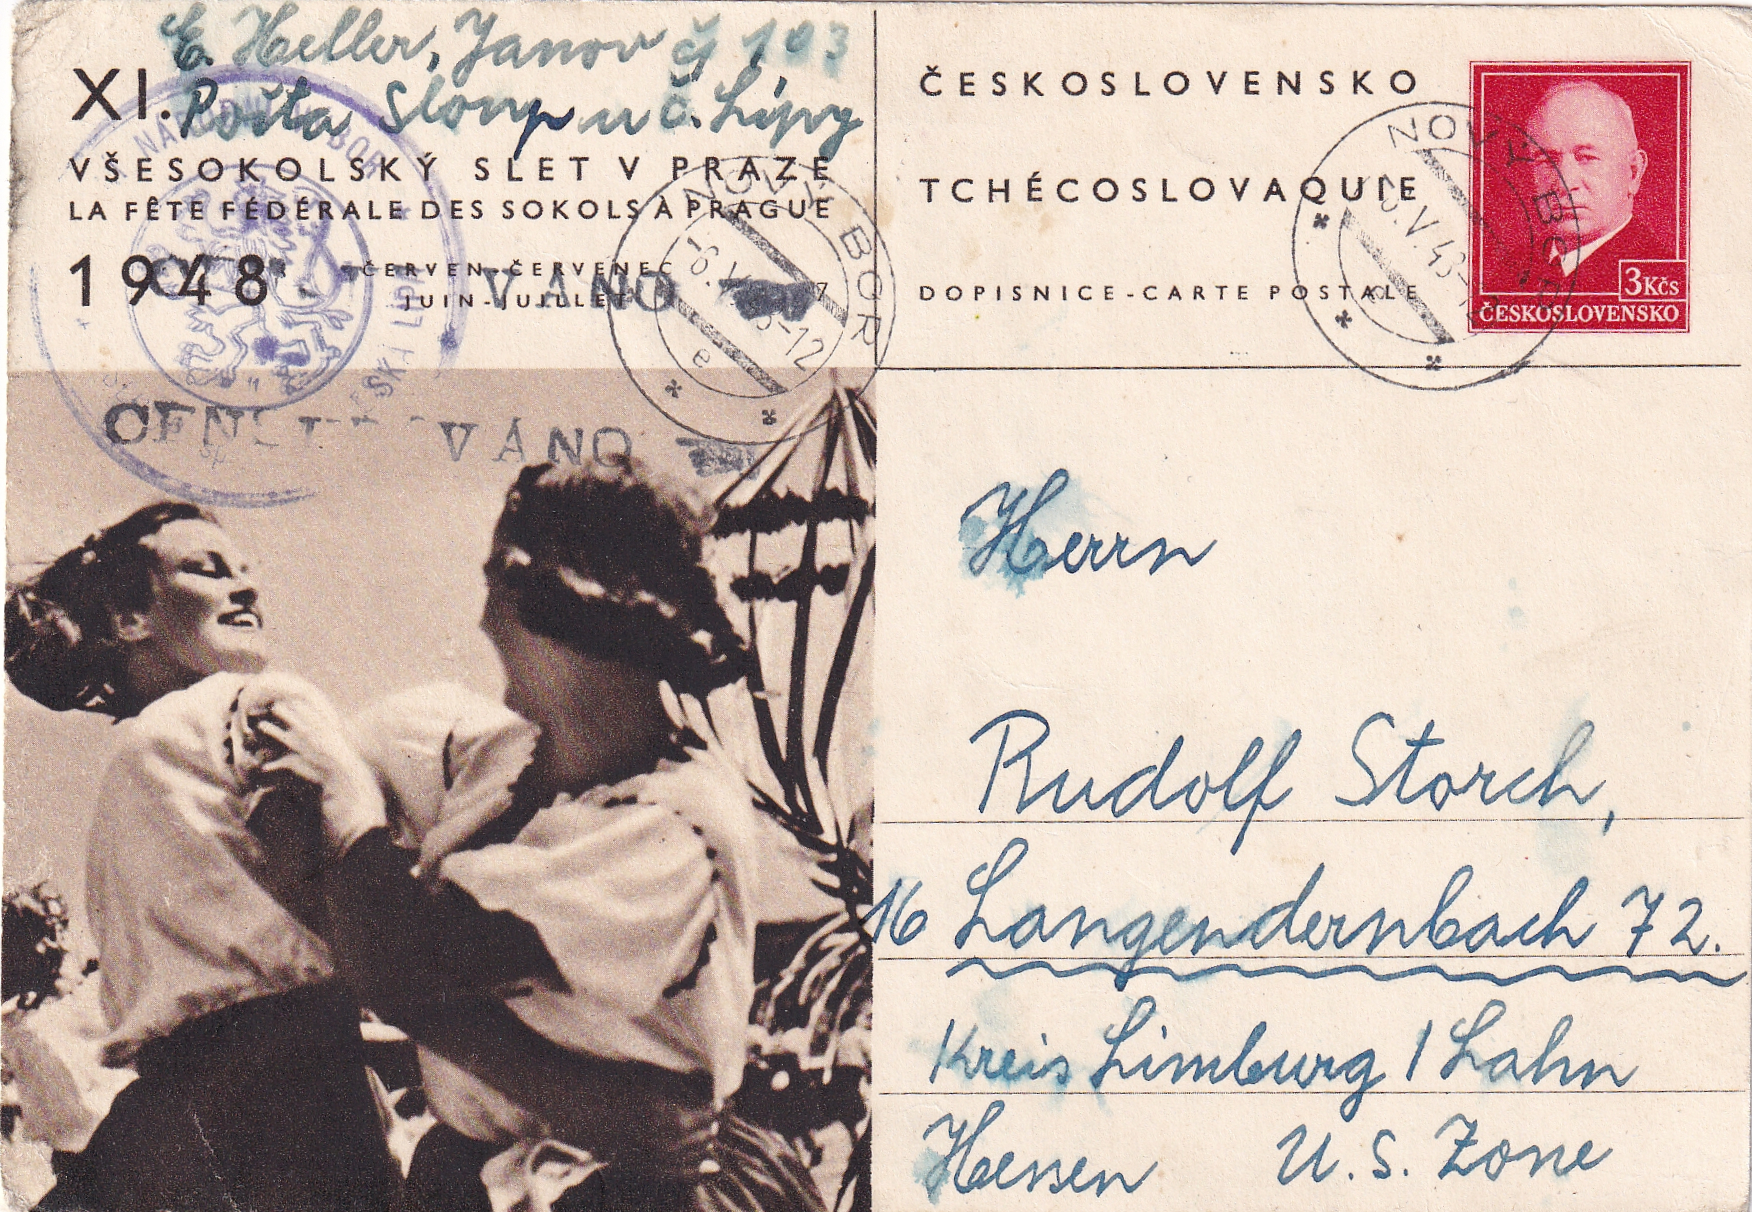 E. Heller, Janov č 103
Pošta Sloup u Č. Lípy
XI.
VŠESOKOLSKÝ SLET V PRAZE
LA FÊTE FÉDÉRALE DES SOKOLS À PRAGUE
1948
ČERVEN-ČERVENEC
JUIN-JUILLET
NÁRODNÍ VÝBOR
VÁNO
CEN VÁNO
NOVÝ BOR
e
ČESKOSLOVENSKO
TCHÉCOSLOVAQUIE
DOPISNICE-CARTE POSTALE
3 Kčs
ČESKOSLOVENSKO
NOVÝ BOR
Herrn
Rudolf Storch,
16 Langendernbach 72.
Kreis Limburg / Lahn
Hessen U. S. Zone